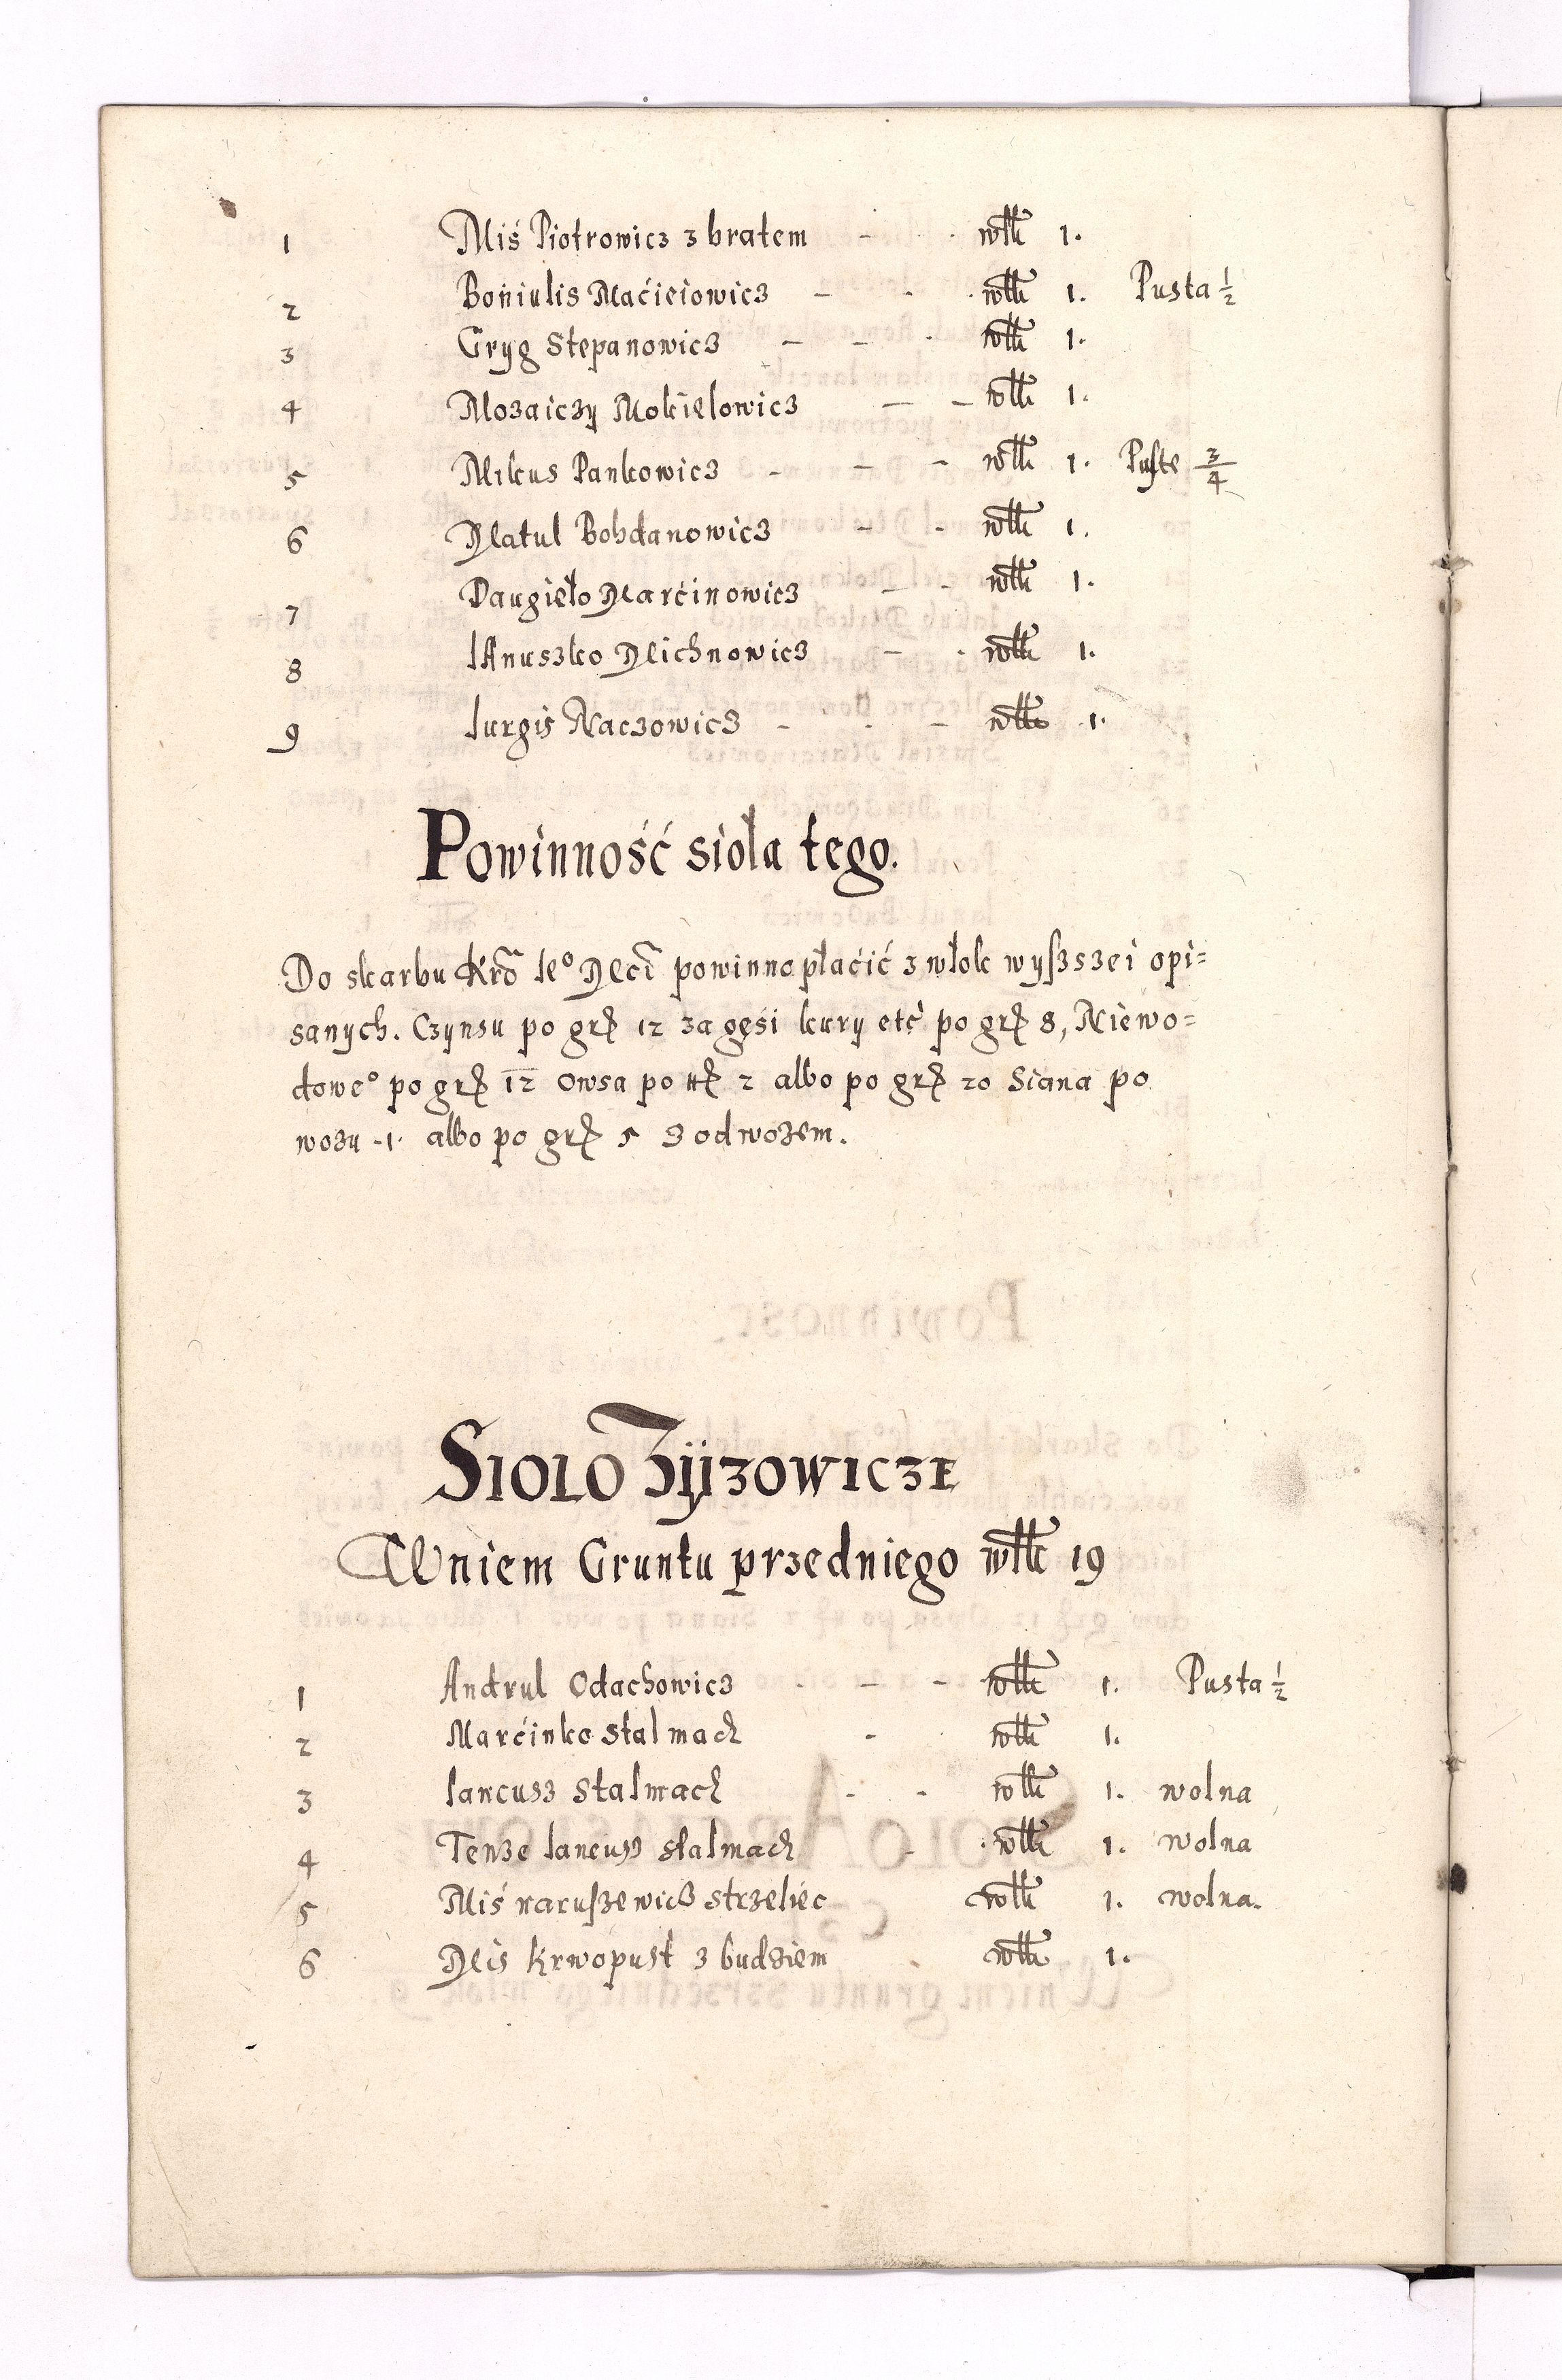 1 Miś Piotrowicz z bratem - - włk 1.
2 Boniulis Maćieiowicz - - włk 1. Pusta 1/2
3 Gryg Stepanowicz - - włk 1.
4 Mozaiczy Mokielowicz - - włk 1.
5 Mikus Pankowicz - - - włk 1. Puste 3/4
6 Matul Bohdanowicz - - włk 1.
7 Daugieło Marćinowicz - - włk 1.
8 Ianuszko Michnowicz - - włk 1.
9 Iurgis Naczowicz - - - włk 1.
Powinność sioła tego.
Do skarbu Kró Ie° Mći powinno płaćić z włok wyszszei opi=
sanych. Czynsu po grß 12 za gęśi kury etć po grß 8, Niewo=
dowe° po grß 12 Owsa po 2 albo po grß 20 Siana po
wozu -1· albo po grß 5 Z odwozem.
SIOLO Zÿzowicze
W niem Gruntu przedniego włk 19
1 Andrul Odachowicz - - - włk 1. Pusta 1/2
2 Marćinko stalmach - włk 1.
3 Iancusz stalmach - - włk 1. wolna
4 Tenze Iancusz stalmach - włk 1. wolna
5 Miś naruszewicz strzeliec włk 1. wolna.
6 Mis Krwopust z budziem włk 1.